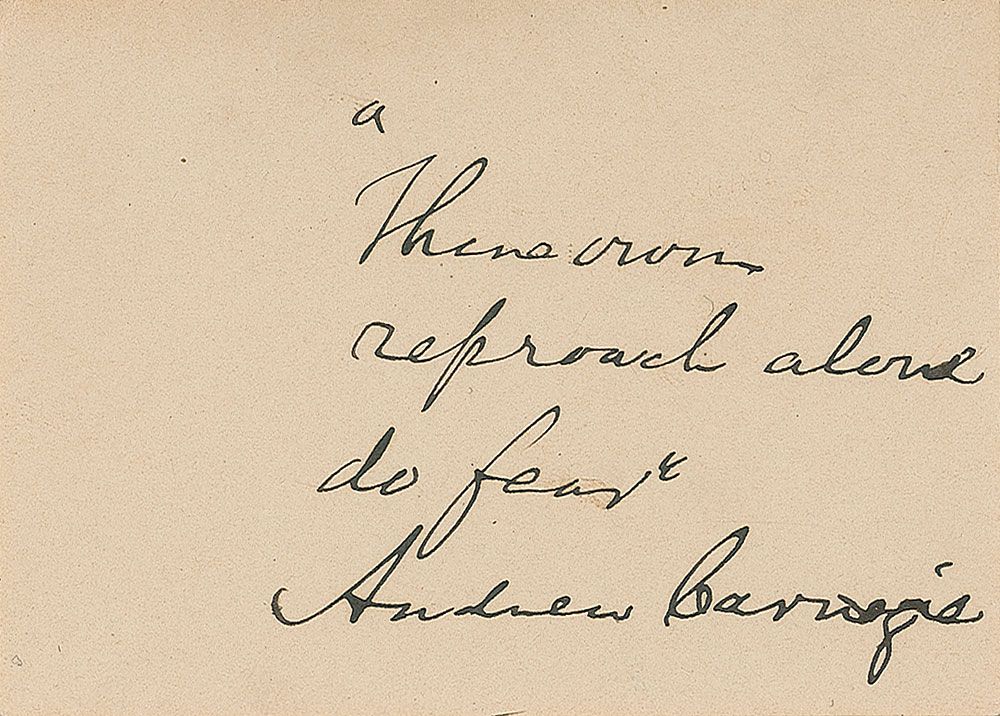 "
Thine own
reproach alone
do fear"
Andrew Carnegie